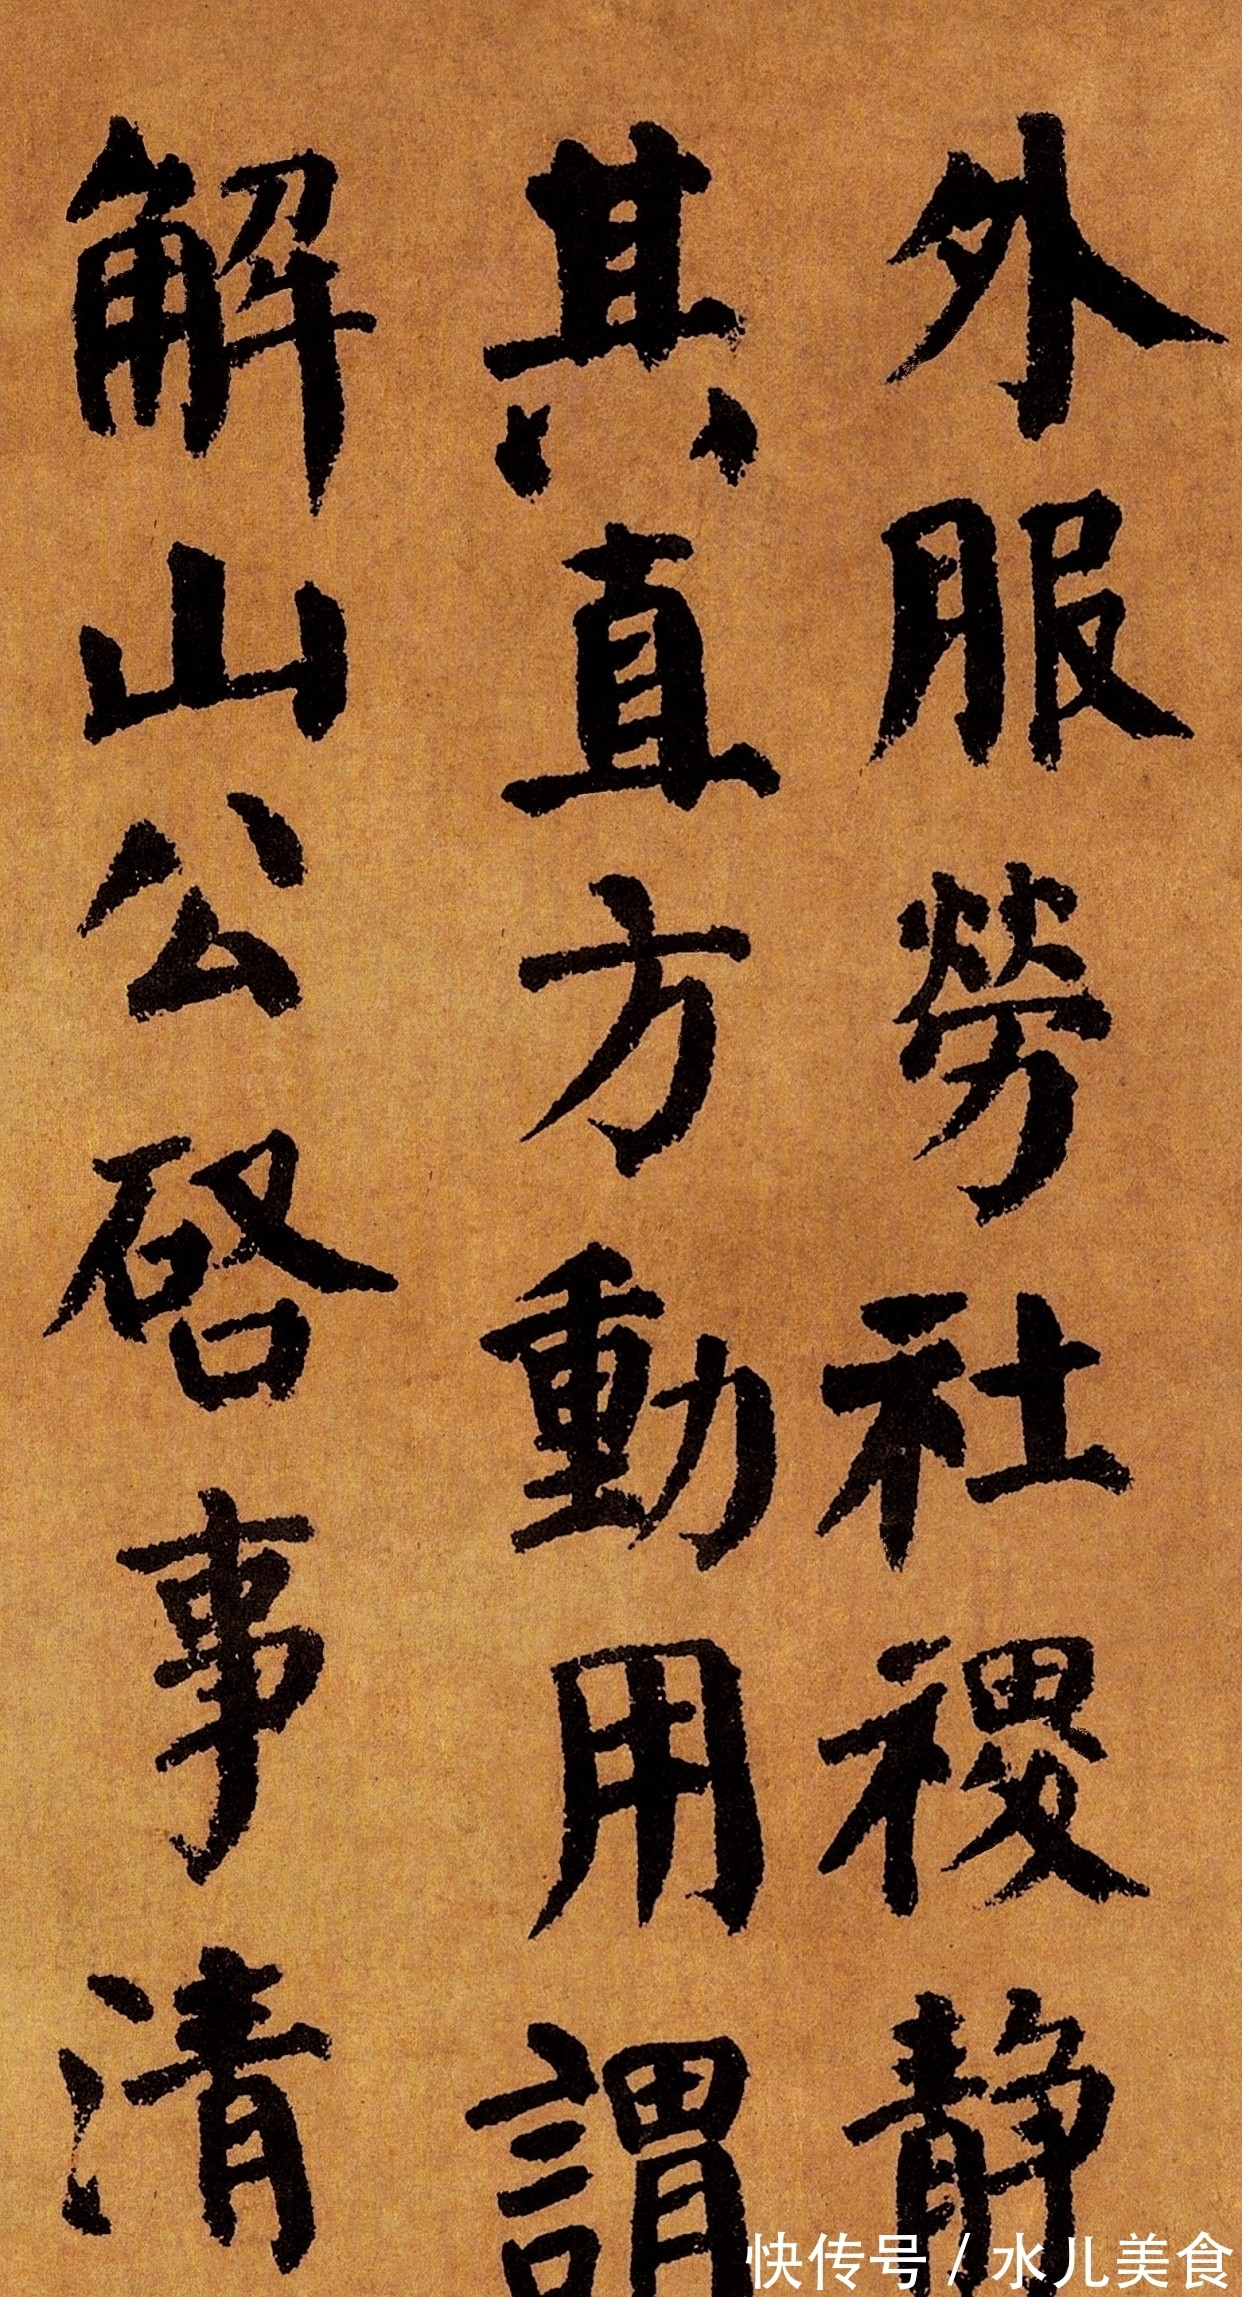 外服勞社稷静
其直方動用謂
解山公啓事清
快传号 / 水儿美食